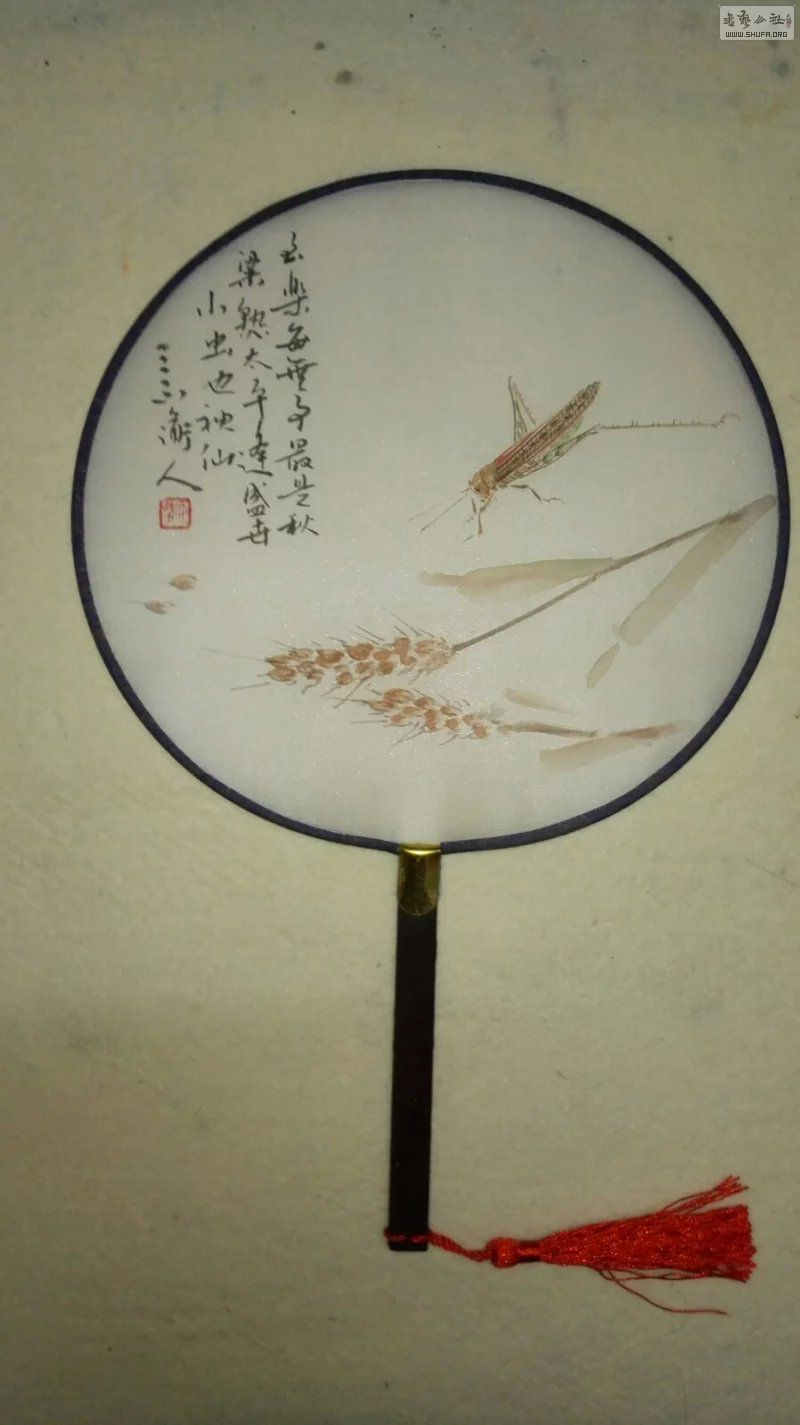 書藝公社
WWW.SHUFA.ORG
至樂每無事最是秋
粱熟太平逢盛世
小虫也神仙
人